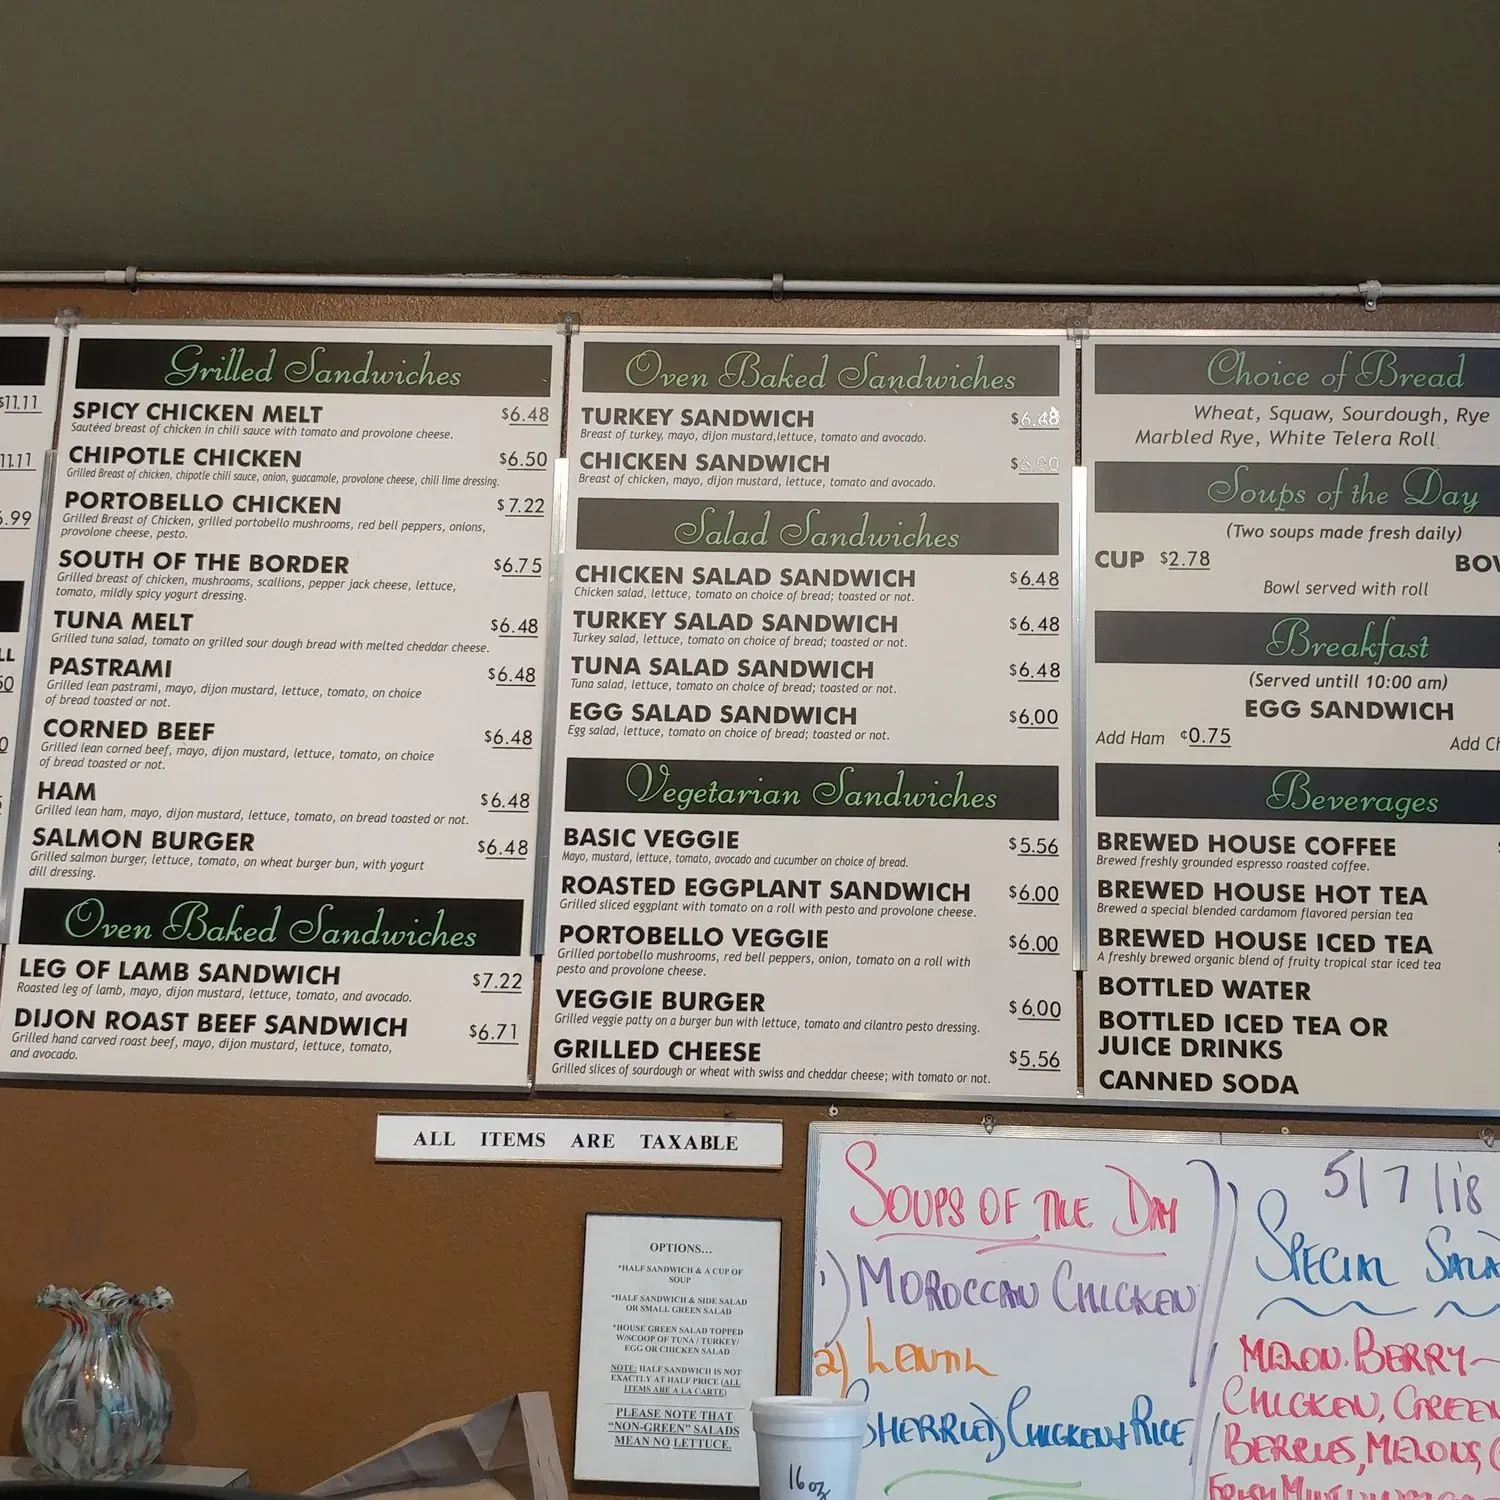 $11.11
11.11
.99
LL
50
0
Grilled Sandwiches
SPICY CHICKEN MELT $6.48
Sautéed breast of chicken in chili sauce with tomato and provolone cheese.
CHIPOTLE CHICKEN $6.50
Grilled Breast of chicken, chipotle chili sauce, onion, guacamole, provolone cheese, chili lime dressing.
PORTOBELLO CHICKEN $7.22
Grilled Breast of Chicken, grilled portobello mushrooms, red bell peppers, onions,
provolone cheese, pesto.
SOUTH OF THE BORDER $6.75
Grilled breast of chicken, mushrooms, scallions, pepper jack cheese, lettuce,
tomato, mildly spicy yogurt dressing.
TUNA MELT $6.48
Grilled tuna salad, tomato on grilled sour dough bread with melted cheddar cheese.
PASTRAMI $6.48
Grilled lean pastrami, mayo, dijon mustard, lettuce, tomato, on choice
of bread toasted or not.
CORNED BEEF $6.48
Grilled lean corned beef, mayo, dijon mustard, lettuce, tomato, on choice
of bread toasted or not.
HAM $6.48
Grilled lean ham, mayo, dijon mustard, lettuce, tomato, on bread toasted or not.
SALMON BURGER $6.48
Grilled salmon burger, lettuce, tomato, on wheat burger bun, with yogurt
dill dressing.
Oven Baked Sandwiches
LEG OF LAMB SANDWICH $7.22
Roasted leg of lamb, mayo, dijon mustard, lettuce, tomato, and avocado.
DIJON ROAST BEEF SANDWICH $6.71
Grilled hand carved roast beef, mayo, dijon mustard, lettuce, tomato,
and avocado.
Oven Baked Sandwiches
TURKEY SANDWICH $6.48
Breast of turkey, mayo, dijon mustard,lettuce, tomato and avocado.
CHICKEN SANDWICH $6.00
Breast of chicken, mayo, dijon mustard, lettuce, tomato and avocado.
Salad Sandwiches
CHICKEN SALAD SANDWICH $6.48
Chicken salad, lettuce, tomato on choice of bread; toasted or not.
TURKEY SALAD SANDWICH $6.48
Turkey salad, lettuce, tomato on choice of bread; toasted or not.
TUNA SALAD SANDWICH $6.48
Tuna salad, lettuce, tomato on choice of bread; toasted or not.
EGG SALAD SANDWICH $6.00
Egg salad, lettuce, tomato on choice of bread; toasted or not.
Vegetarian Sandwiches
BASIC VEGGIE $5.56
Mayo, mustard, lettuce, tomato, avocado and cucumber on choice of bread.
ROASTED EGGPLANT SANDWICH $6.00
Grilled sliced eggplant with tomato on a roll with pesto and provolone cheese.
PORTOBELLO VEGGIE $6.00
Grilled portobello mushrooms, red bell peppers, onion, tomato on a roll with
pesto and provolone cheese.
VEGGIE BURGER $6.00
Grilled veggie patty on a burger bun with lettuce, tomato and cilantro pesto dressing.
GRILLED CHEESE $5.56
Grilled slices of sourdough or wheat with swiss and cheddar cheese; with tomato or not.
Choice of Bread
Wheat, Squaw, Sourdough, Rye
Marbled Rye, White Telera Roll
Soups of the Day
(Two soups made fresh daily)
CUP $2.78 BOW
Bowl served with roll
Breakfast
(Served untill 10:00 am)
EGG SANDWICH
Add Ham ¢0.75 Add Ch
Beverages
BREWED HOUSE COFFEE
Brewed freshly grounded espresso roasted coffee.
BREWED HOUSE HOT TEA
Brewed a special blended cardamom flavored persian tea
BREWED HOUSE ICED TEA
A freshly brewed organic blend of fruity tropical star iced tea
BOTTLED WATER
BOTTLED ICED TEA OR
JUICE DRINKS
CANNED SODA
ALL ITEMS ARE TAXABLE
OPTIONS...
*HALF SANDWICH & A CUP OF
SOUP
*HALF SANDWICH & SIDE SALAD
OR SMALL GREEN SALAD
*HOUSE GREEN SALAD TOPPED
W/SCOOP OF TUNA / TURKEY/
EGG OR CHICKEN SALAD
NOTE: HALF SANDWICH IS NOT
EXACTLY AT HALF PRICE (ALL
ITEMS ARE A LA CARTE)
PLEASE NOTE THAT
"NON-GREEN" SALADS
MEAN NO LETTUCE.
SOUPS OF THE DAY
1) MOROCCAN CHICKEN
2) LENTIL
SHERRIED CHICKEN + RICE
16oz
5/7/18
SPECIAL SALA
MELON.BERRY~
CHICKEN, GREEN
BERRIES, MELONS,
FRESH